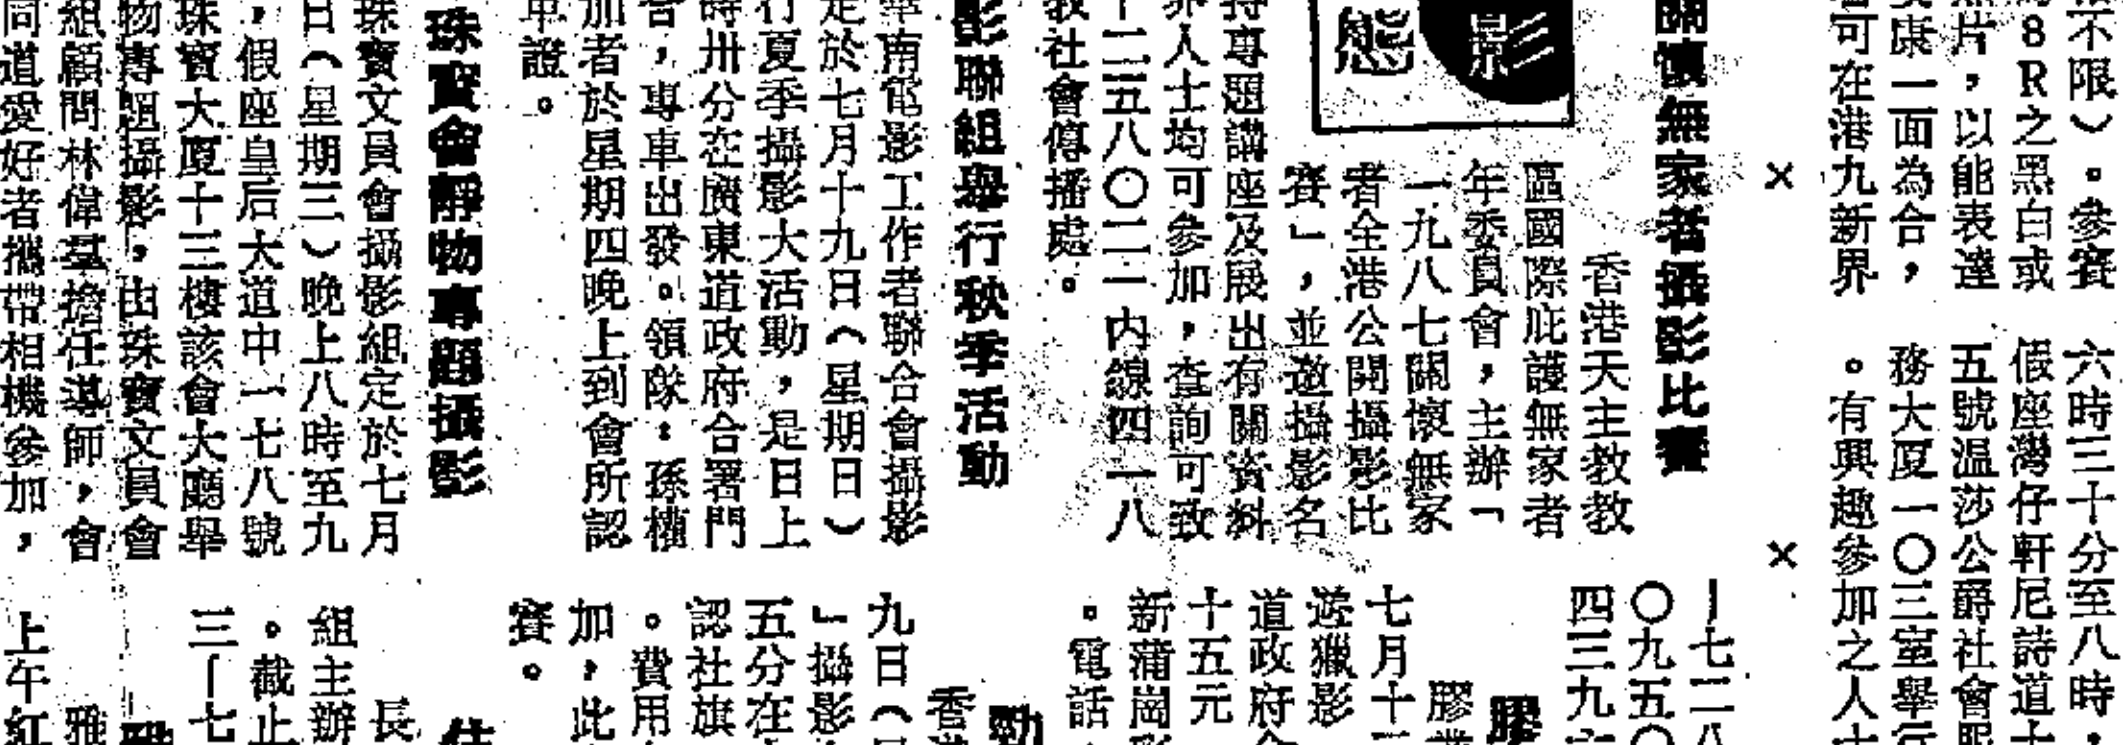 不限）。參賽
8R之黑白或
照片，以能表達
康一面為合，
可在港九新界
六時三十分至八時，
假座灣仔軒尼詩道
五號温莎公爵社會
務大厦一〇三室舉行
。有興趣參加之人士
×
×
關懷無家者攝影比賽
影
態
香港天主教教
區國際庇護無家者
年委員會，主辦「
一九八七關懷無家
者全港公開攝影比
賽」，並邀攝影名
持專題講座及展出有關資料
界人士均可參加，查詢可致
十二五八〇二一内線四一八
教社會傳播處。
影聯組舉行秋季活動
華南電影工作者聯合會攝影
定於七月十九日（星期日）
行夏季攝影大活動，是日上
時卅分在廣東道政府合署門
合，專車出發。領隊：孫權
加者於星期四晚上到會所認
車證。
珠寶會靜物專題攝影
珠寶文員會攝影組定於七月
日（星期三）晚上八時至九
，假座皇后大道中一七八號
珠寶大厦十三樓該會大廳舉
物專題攝影，由珠寶文員會
組顧問林偉羣擔任導師，會
同道愛好者攜帶相機參加，
七二八
〇九五〇
四三九
膠
膠
七月十
遊獵影
道政府
十五元
新蒲崗
。電話
勁
香
九日（
」攝影
五分在
認社旗
。費用
加，此
賽。
長
組主辦
。截止
三
七
雅
上午紅